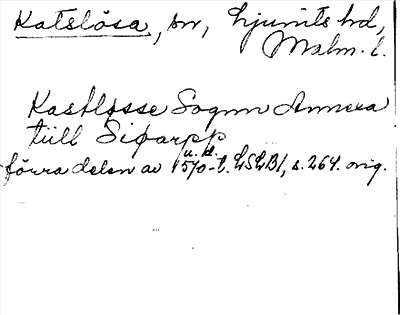 Katslösa, sn, Ljunits hd,
Malm. l.
Kastløsse Sognn Annexa
till Siøarpp
u. d.
förra delen av 1570-t. LSLB1, s. 264. orig.